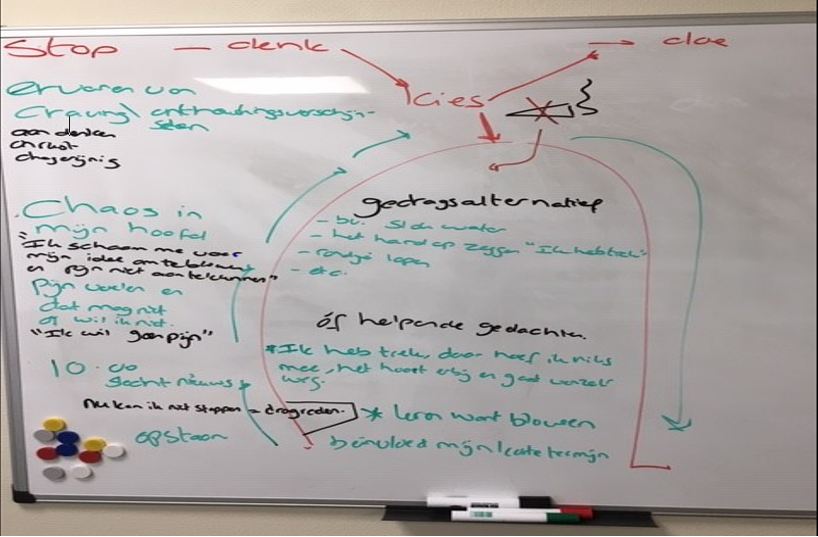 Stop — denk → kies → doe
ervaren van
Craving \ ontwenningsverschijn-
selen
aan denken
onrust
chagerijnig
gedragsalternatief
- bv. slok water
- het hardop zeggen "Ik heb trek"
- rondje lopen
- etc.
Chaos in
mijn hoofd
"Ik schaam me voor
mijn idee om te blowen
en pijn niet aan te kunnen"
Pijn voelen en
dat mag niet
of wil ik niet.
"Ik wil geen pijn"
óf helpende gedachten.
*Ik heb trek, daar hoef ik niks
mee, het hoort erbij en gaat vanzelf
weg.
10.00
slecht nieuws
Nu kan ik niet stoppen = drogreden.
* leren want blowen
beïnvloed mijn korte termijn
opstaan